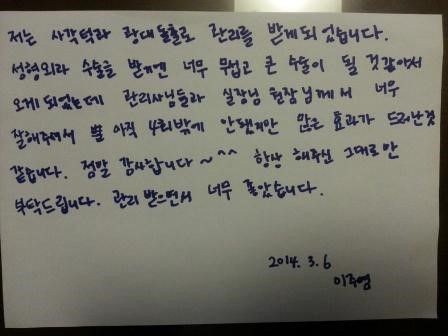 저는 사각턱과 광대돌출로 관리를 받게되었습니다.
성형외과 수술을 받기엔 너무 무섭고 큰 수술이 될것같아서
오게되었는데 관리사님들과 실장님 원장님께서 너무
잘해주셔서 아직 4회밖에 안됐지만 많은 효과가 드러난것
같습니다. 정말 감사합니다~^^ 항상 해주신 그대로만
부탁드립니다. 관리 받으면서 너무 좋았습니다.
2014. 3. 6
이주영